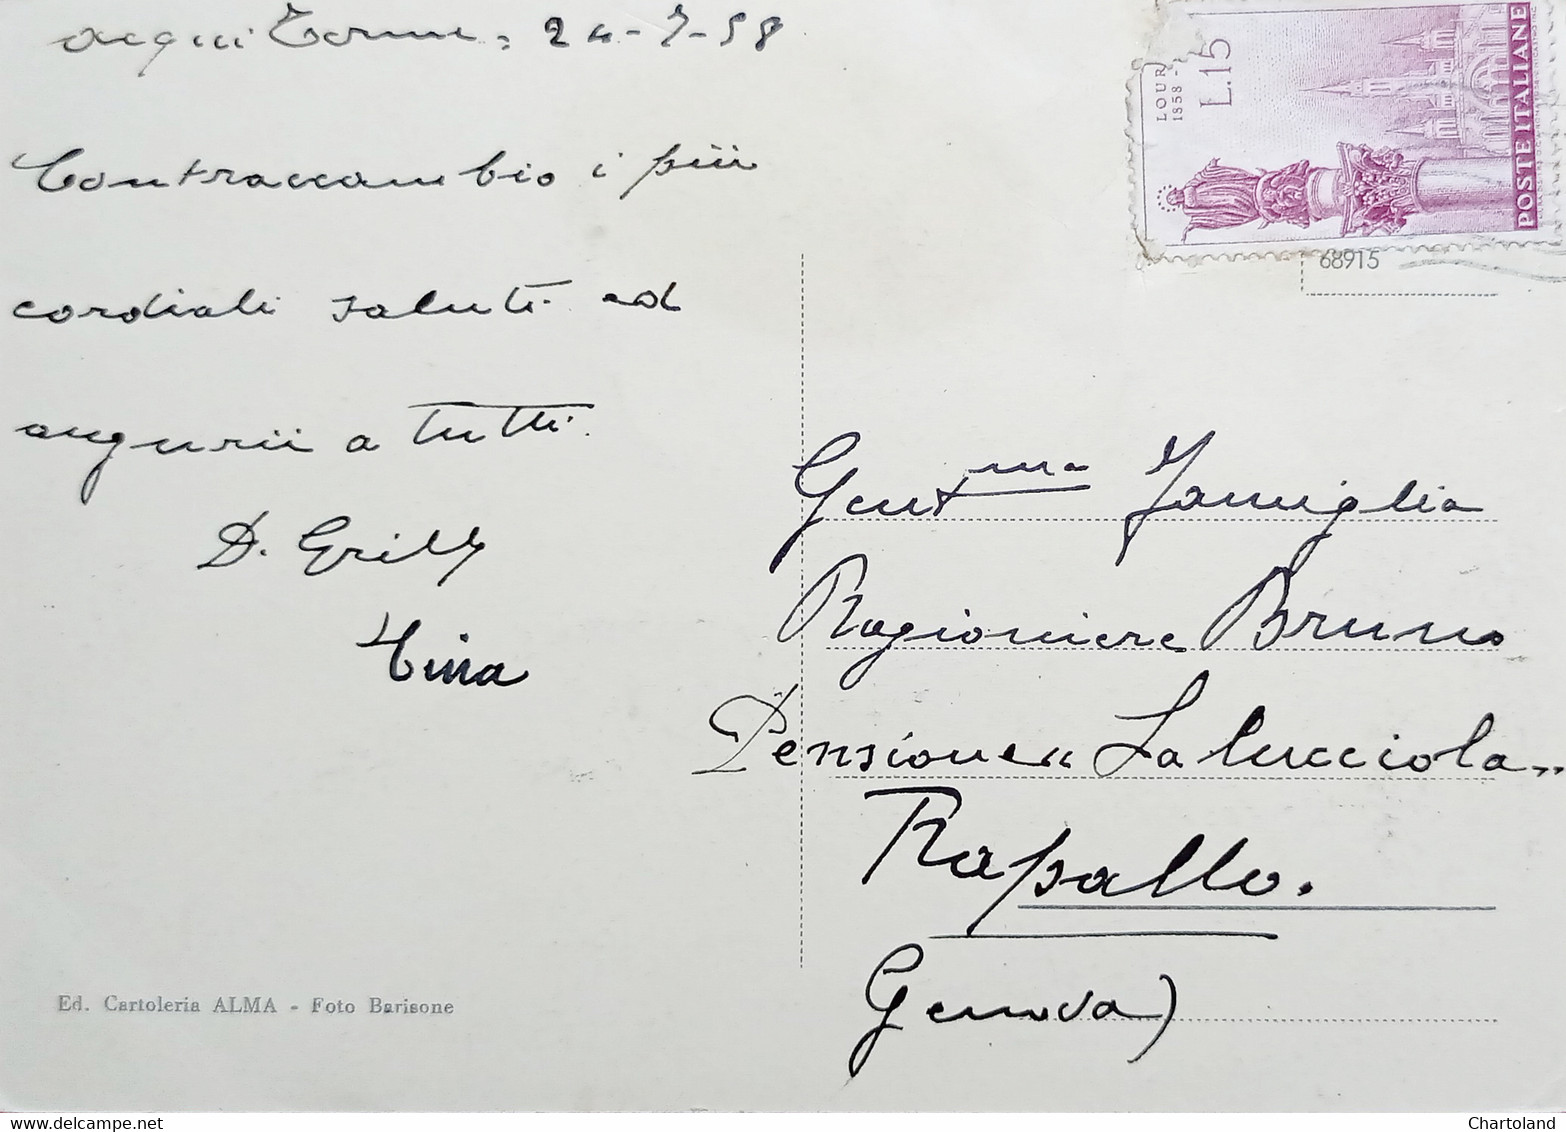 Acqui Terme, 24-7-58
Contraccambio i più
cordiali saluti ed
augurii a tutti.
D. Grilly
Tina
LOUR
1858 -
L.15
POSTE ITALIANE
68915
Gent.ma Famiglia
Ragioniere Bruno
Pensione "La lucciola"
Rapallo.
Genova)
Ed. Cartoleria ALMA - Foto Barisone
Chartoland